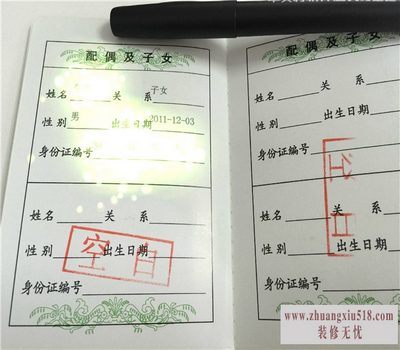 配偶及子女
姓名 关 系 子女
性别 男 出生日期 2011-12-03
身份证编号
姓名 关 系
性别 出生日期
空白
身份证编号
配偶及子女
姓名 关 系
性别 出生日期
身份证编号
空白
姓名 关 系
性别 出生日期
身份证编号
www.zhuangxiu518.com
装修无忧